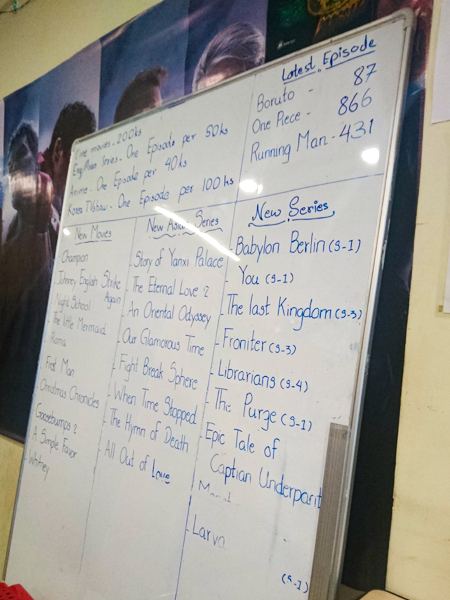 Time movies - 200ks
Eng/Asian Series - One Episode per 50ks
Anime - One Episode per 40ks
Korea TVshow - One Episode per 100ks
Latest Episode
Boruto - 87
One Piece - 866
Running Man - 431
New Movies
Champion
Johnney English Strike
Again
Night School
The little Mermaid
First Man
Christmas Chronicles
Goosebumps 2
A Simple Favor
Whitney
New Asian Series
Story of Yanxi Palace
- The Eternal Love 2
- An Oriental Odyssey
- Our Glamorous Time
- Fight Break Sphere
- When Time Stopped
- The Hymn of Death
- All Out of Love
New Series
- Babylon Berlin (S-1)
- You (S-1)
- The last Kingdom (S-3)
- Froniter (S-3)
- Librarians (S-4)
- The Purge (S-1)
- Epic Tale of
Captian Underpant
- Larva
(S-1)